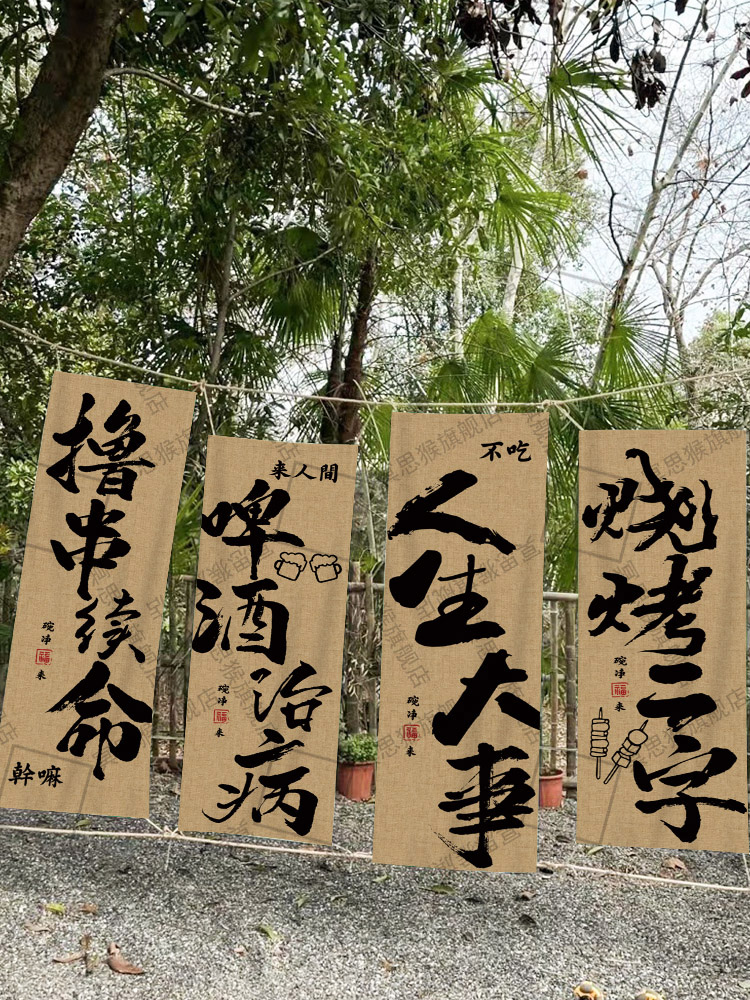 撸串续命
碗净
福
来
幹嘛
来人間
啤酒治病
碗净
福
来
不吃
人生大事
碗净
福
来
烧烤二字
碗净
福
来